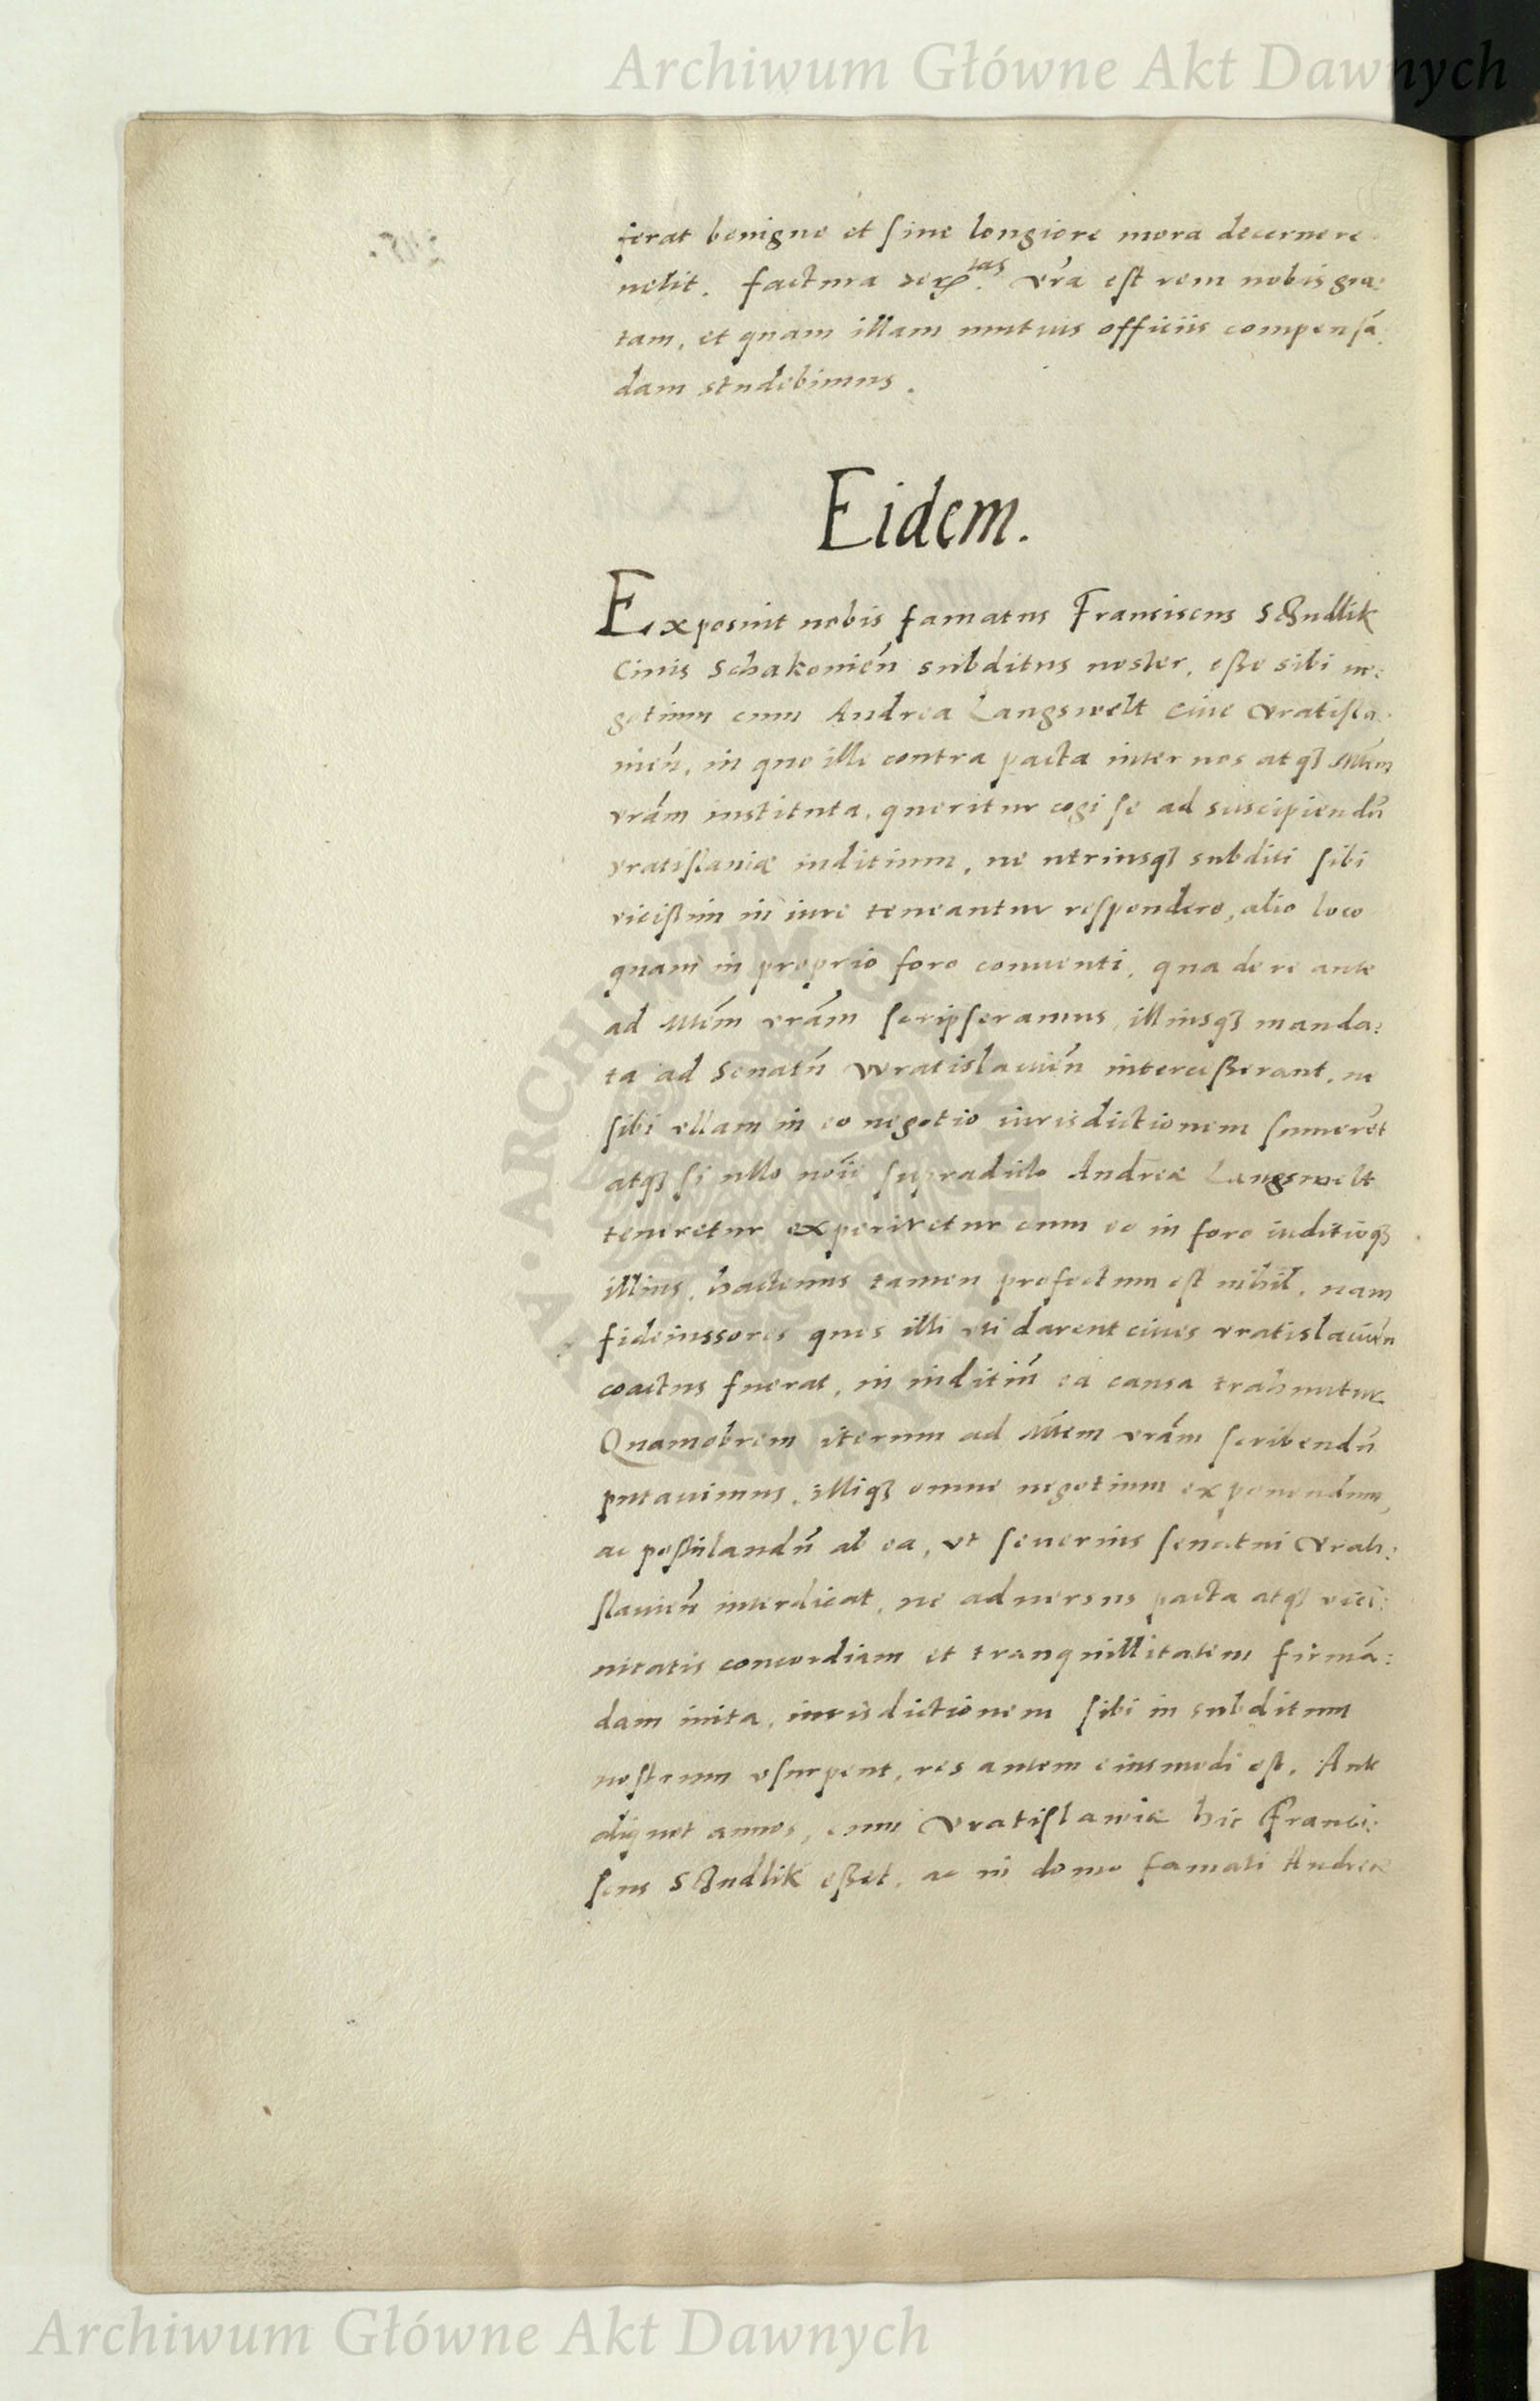 Archiwum Główne Akt Dawnych
ferat benigne et sine longiore mora decernere
velit. factura Ser.tas vra est rem nobis gra:
tam, et quam illam mutuis officiis compensā
dam studebimus.
Eidem.
Exposuit nobis famatus Franciscus
Civis Schakovień subditus noster, esse sibi ne:
gotium cum Andrea Langswelt cive vratisla:
vień, in quo ille contra pacta inter nos atq3 Mtem
vrām instituta, queritur cogi se ad suscipiendū
vratislaviæ iuditium, ne utriusq3 subditi sibi
vicissim in iure teneantur respondere, alio loco
quam in proprio foro conventi, qua de re ante
ad Mtem vrām scripseramus, illiusq3 manda:
ta ad Senatū vvratislavień intercesserant, ne
sibi vllam in eo negotio iurisdictionem sumeret
atq3 si ullo noīe supradicto Andreæ Langswelt
teneretur experiretur cum eo in foro iuditioq3
illius, hactenus tamen profectum est nihil, nam
fideiussores quos illi vti darent cives vratislavień
coactus fuerat, in iuditiū ea causa trahuntur
Quamobrem iterum ad Mtem vrām scribendū
putavimus, illiq3 omne negotium exponendum,
ac postulandū ab ea, vt severius senatui vrati:
slavień interdicat, ne adversus pacta atq3 vici:
nitatis concordiam et tranquillitatem firmā:
dam inita, iurisdictionem sibi in subditum
nostrum vsurpent, res autem eiusmodi est. Ante
aliquot annos, cum vratislaviæ hic Franci:
scus esset, ac in domo famati Andreæ
ARCHIWUM GŁÓWNE
AKT DAWNYCH
Archiwum Główne Akt Dawnych